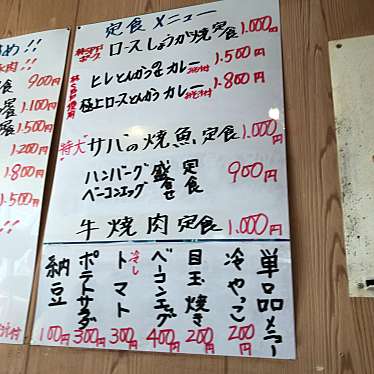 め!!
豚肉
食 900円
1.100円
1.500円
1.200円
1.800円
1.500円
!!
付
定食メニュー
ロースしょうが焼定食 1.000円
ヒレとんかつ&カレー みそ汁付 1.500円
極上ロースとんかつカレー みそ汁付 1.800円
特大 サバの焼魚定食 1.000円
ハンバーグ
ベーコンエッグ 盛合せ定食 900円
牛焼肉定食 1.000円
単品メニュー
冷やっこ 200円
目玉焼き 200円
ベーコンエッグ 400円
冷しトマト 300円
ポテトサラダ 300円
納豆 100円